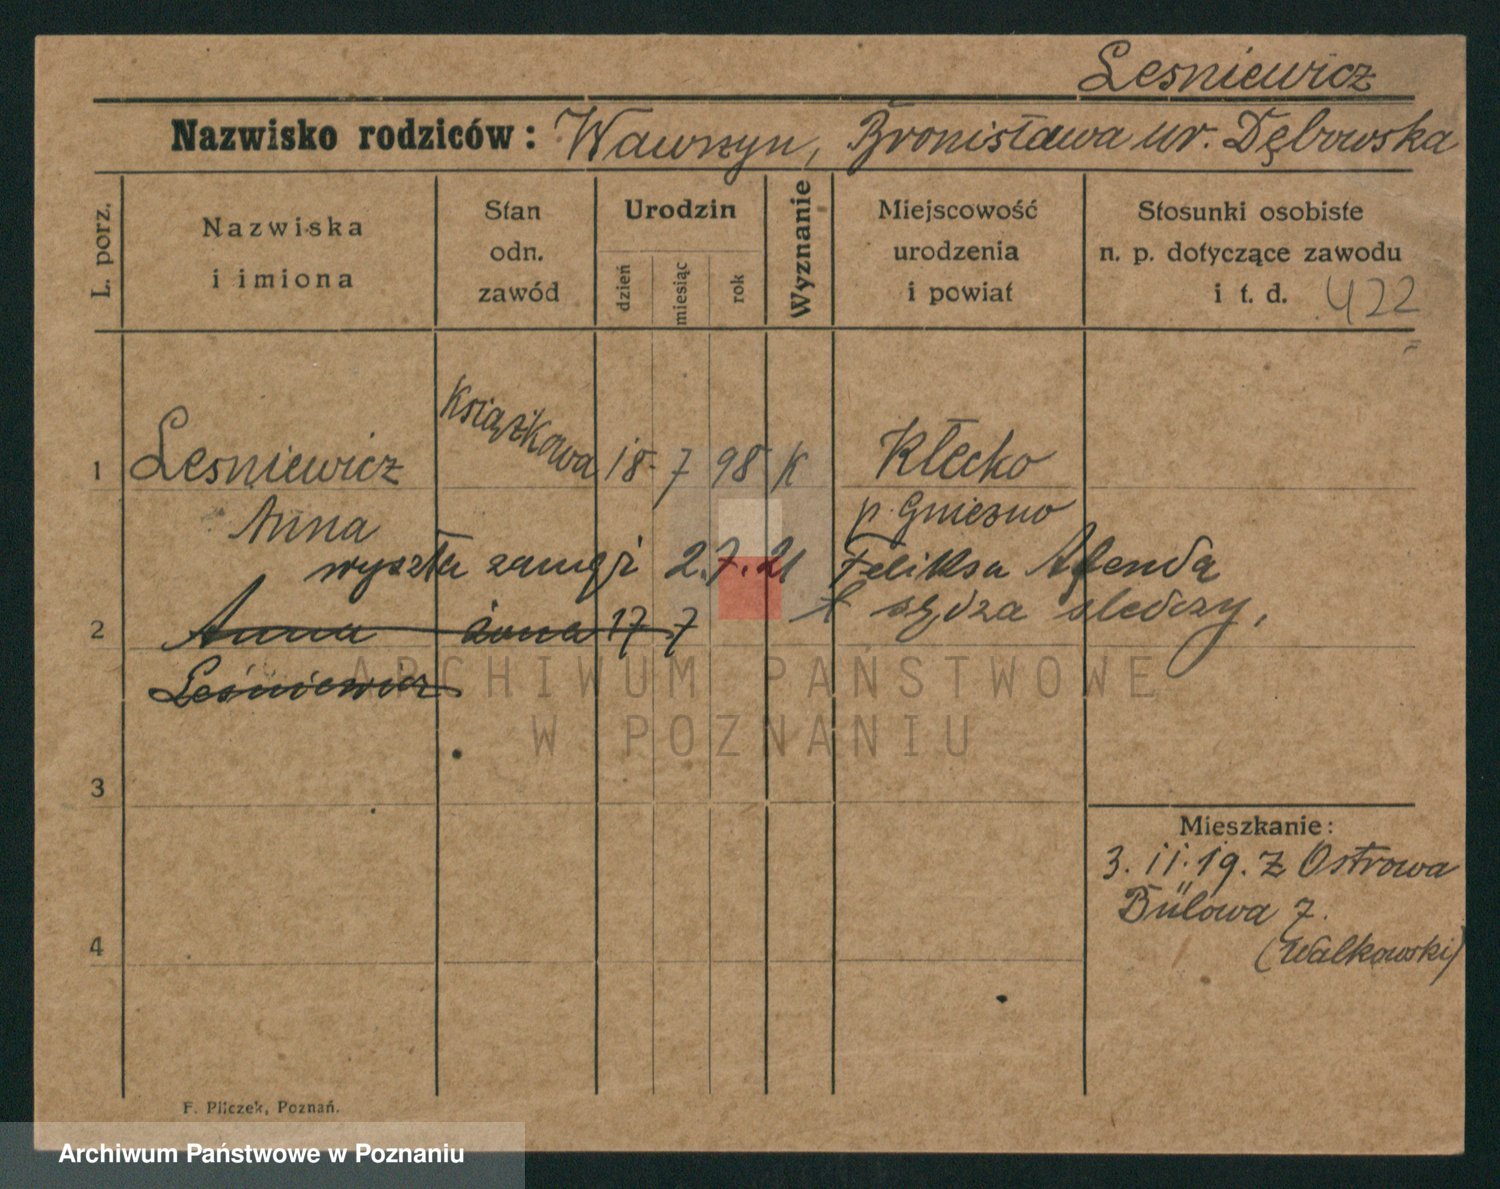 Lesniewicz
Nazwisko rodziców: Wawrzyn, Bronisława ur. Dębowska
L. porz.
Nazwiska
i imiona
Stan
odn.
zawód
Urodzin
dzień
miesiąc
rok
Wyznanie
Miejscowość
urodzenia
i powiat
Stosunki osobiste
n. p. dotyczące zawodu
i t. d. 422
1 Lesniewicz Książkowa 18 7 98 K Kłecko
Anna p. Gniezno
wyszła zamąż 2.7.21 Feliksa
sędza sledczy,
2 Anna żona 17 7
Leśniewicz
ARCHIWUM PAŃSTWOWE
W POZNANIU
3
Mieszkanie:
3. 11. 19. z Ostrowa
Bülowa 7.
(Walkowski)
4
F. Pilczek, Poznań.
Archiwum Państwowe w Poznaniu